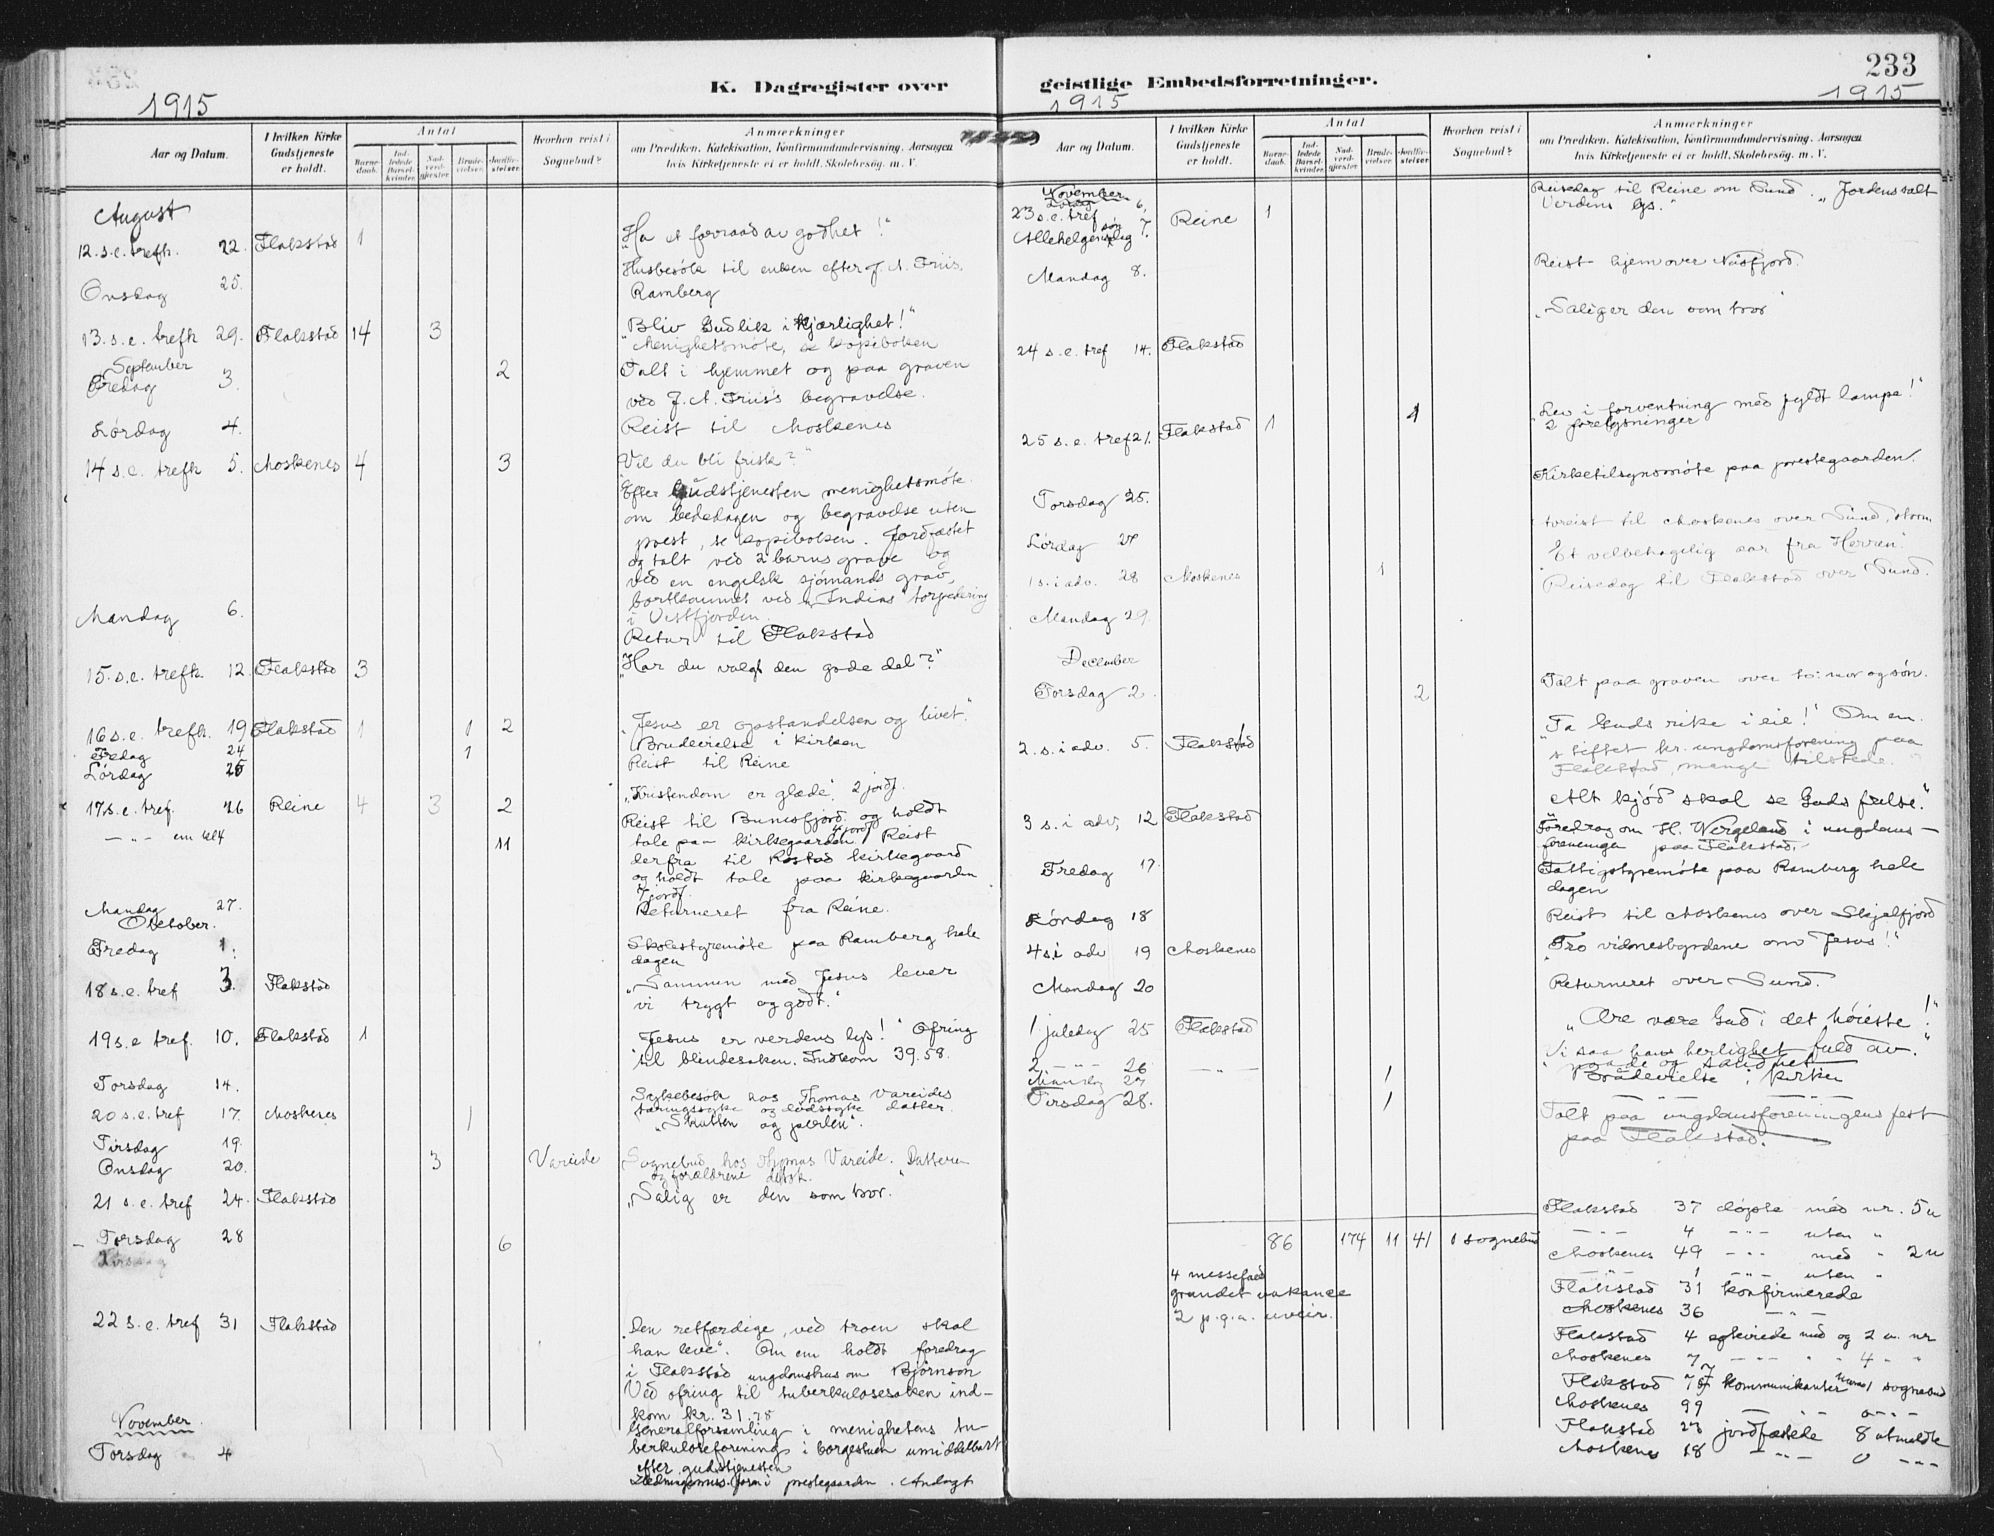 233
K. Dagregister over geistlige Embedsforretninger.
1915
1915
1915
Aar og Datum.
I hvilken Kirke Gudstjeneste er holdt.
Antal
Barnedaab.
Indledede Barselkvinder.
Nadverdgjester.
Brudevielser.
Jordfæstelser.
Hvorhen reist i Sognebud?
Anmerkninger
om Prædiken, Katekisation, Konfirmandundervisning, Aarsagen
hvis Kirketjeneste ei er holdt, Skolebesøg, m. V.
August
12. s.e. trefh. 22. Flakstad 1 "Ha et forraad av godhet!"
Onsdag 25. Husbesök til enken efter J. A. Friis,
Ramberg
13. s.e. trefh 29. Flakstad 14 3 "Bliv Gud lik i kjærlighet!"
Menighetsmöte, se kopiboken
September
Fredag 3. 2 Talt i hjemmet og paa graven
ved J. A. Friis's begravelse.
Lördag 4. Reist til Moskenes
14 s.e. trefh 5. Moskenes 4 3 "Vil du bli frisk?"
Efter Gudstjenesten menighetsmöte
om bededagen og begravelse uten
prest, se kopiboken. Jordfæstet
og talt ved 2 barns grave og
ved en engelsk sjömands grav,
bortkommet ved "Indias" torpedering
i Vestfjorden.
Mandag 6. Retur til Flakstad
15. s.e. trefh. 12 Flakstad 3 "Har du valgt den gode del?"
16 s.e. trefh. 19 Flakstad 1 1 2 "Jesus er opstandelsen og livet."
Fredag 24 1 Brudevielse i kirken
Lördag 25 Reist til Reine
17. s.e. tref. 26 Reine 4 3 2 "Kristendom er glæde". 2 jordf.
— " — em kl 4 11 Reist til Bunesfjord og holdt
tale paa kirkegaarden, 4 jordf. Reist
derfra til Rostad kirkegaard
og holdt tale paa kirkegaarden
7 jordf.
Mandag 27. Returneret fra Reine.
Oktober.
Fredag 1. Skolestyremöte paa Ramberg hele
dagen
18 s.e. tref 3. Flakstad "Sammen med Jesus lever
vi trygt og godt."
19 s.e tref. 10. Flakstad 1 "Jesus er verdens lys!" Ofring
til blindesaken. Indkom 39.58.
Torsdag 14. Sykebesök hos Thomas Vareides
tæringssyke og dödssyke datter.
20 s.e. tref 17. Moskenes 1 "Skatten og perlen".
Tirsdag 19.
Onsdag 20. 3 Vareide Sognebud hos Thomas Vareide. Datteren
og forældrene deltok.
21 s.e. tref 24. Flakstad "Salig er den som tror."
Torsdag 28 6
22 s.e. tref 31 Flakstad "Den retfærdige, ved troen skal
han leve". Om em holdt foredrag
i Flakstad ungdomshus om Björnson
Ved ofring til tuberkulosesaken ind-
kom kr. 31.78
Generalforsamling i menighetens tu-
berkuloseforening i borgestuen umiddelbart
efter gudstjenesten
November.
Torsdag 4 i prestegaarden. Andagt
November 6, Reisedag til Reine om Sund. "Jordens salt
Verdens lys."
23 s.e. tref
Allehelgensdag sön 7. Reine 1
Mandag 8. Reist hjem over Nusfjord.
24 s.e. tref 14. Flakstad "Salig er den som tror"
25 s.e. tref 21. Flakstad 1 1 "Lev i forventning med fyldt lampe!"
2 forelysninger
Torsdag 25. Kirketilsynsmöte paa prestegaarden.
Lördag 27 Avreist til Moskenes over Sund, storm
1 s. i adv. 28 Moskenes 1 "Et velbehagelig aar fra Herren."
Mandag 29. Reisedag til Flakstad over Sund.
December
Torsdag 2. 2 Talt paa graven over to: mor og sön.
2. s. i adv. 5. Flakstad "Ta Guds rike i eie!" Om em.
stiftet kr. ungdomsforening paa
Flakstad, mange tilstede.
3 s. i adv, 12 Flakstad "Alt kjöd skal se Guds frelse."
Foredrag om H. Wergeland i ungdoms-
foreningen paa Flakstad.
Fredag 17. Fattigstyremöte paa Ramberg hele
dagen
Lördag 18 Reist til Moskenes over Skjelfjord
4 s. i adv 19 Moskenes "Tro vidnesbyrdene om Jesus!"
Mandag 20 Returneret over Sund.
1 juledag 25 Flakstad "Ære være Gud i det höieste!"
2 — " — 26 — " — "Vi saa hans herlighet fuld av
naade og sandhet."
Mandag 27 1 Brudevielse i kirken
Tirsdag 28. 1 — " — — " — — " —
Talt paa ungdomsforeningens fest
paa Flakstad.
86 174 11 41 1 sognebud
4 messefald
grundet vakance
2 p.g.a. uveir.
Flakstad 37 döpte med nr. 5 u
— " — 4 — " — uten "
Moskenes 49 — " — med " 2 u
— " — 1 — " — uten "
Flakstad 31 konfirmerede
Moskenes 36 — " —
Flakstad 4 egteviede med og 2 u. nr
Moskenes 7 — " — " " 4 " "
Flakstad 75 kommunikanter hvorav 1 sognebud
Moskenes 99 — " — 0 — " —
Flakstad 23 jordfæstede 8 utmeldte
Moskenes 18 — " — 0 — " —